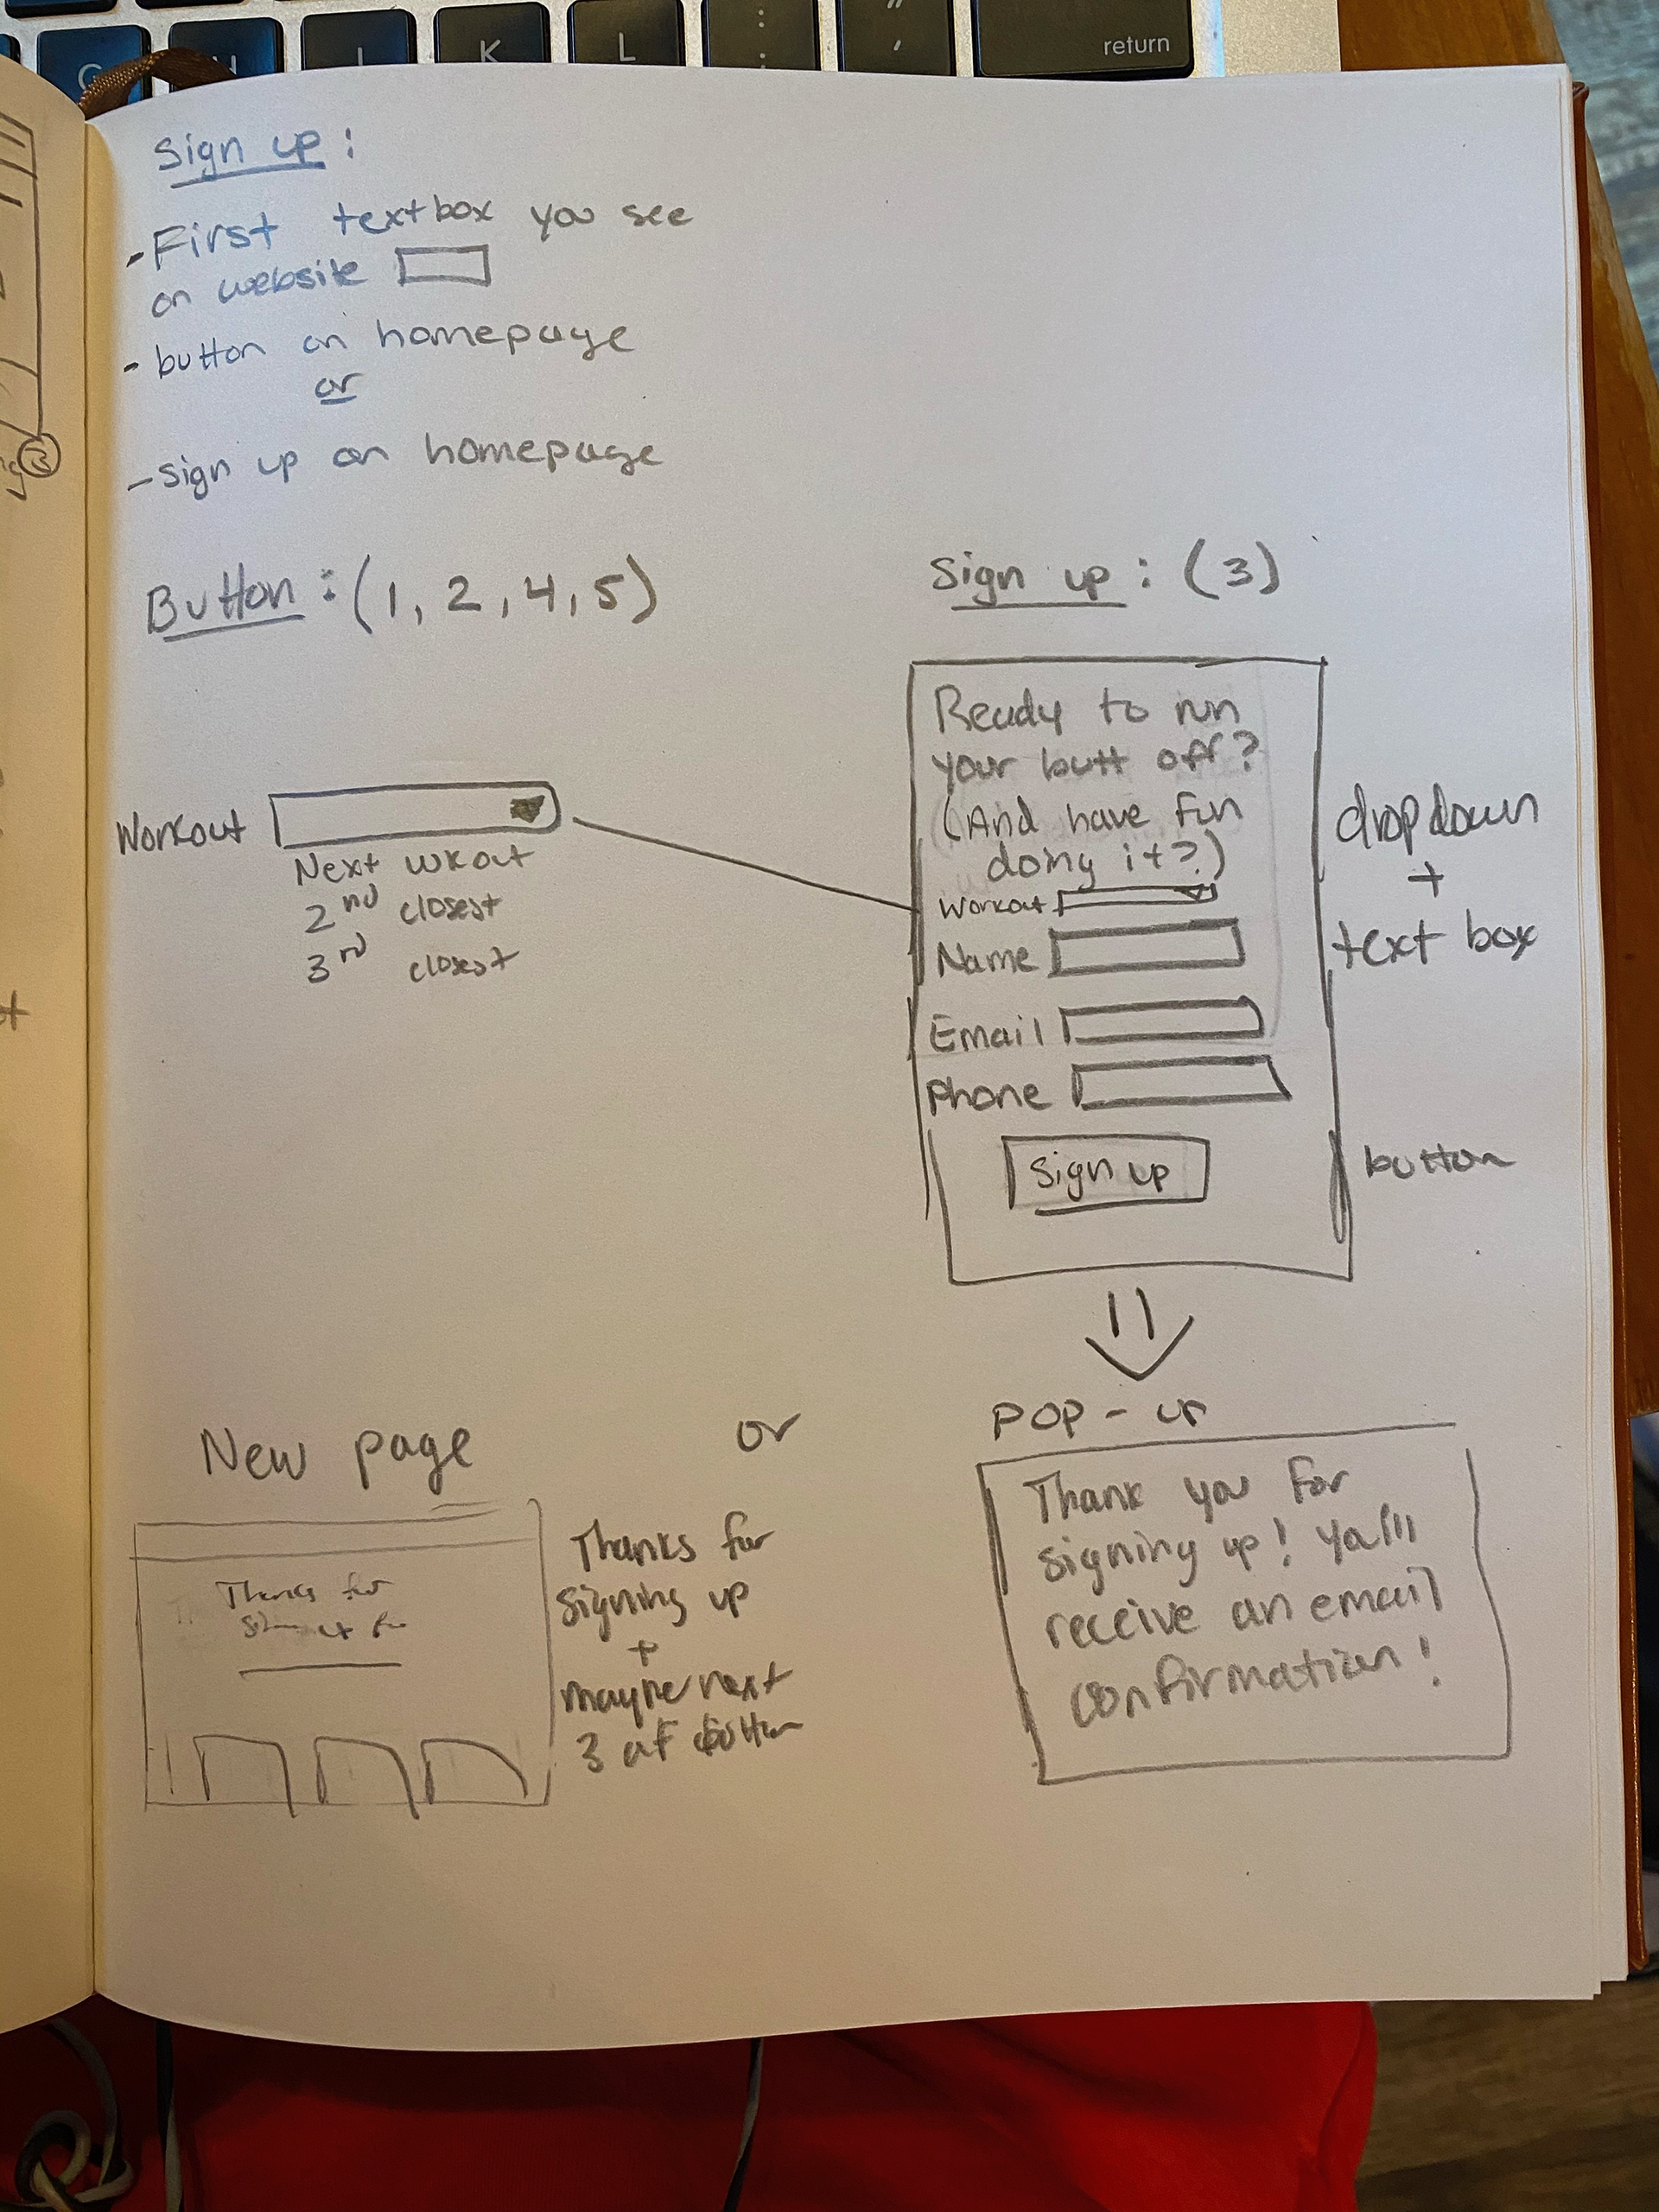 G H J K L : ; " ' return
Sign up :
- First textbox you see
on website
- button on homepage
or
- sign up on homepage
Button : (1, 2, 4, 5)
Workout
Next wkout
2nd closest
3rd closest
Sign up : (3)
Ready to run
your butt off?
(And have fun
doing it?)
Workout
Name
Email
Phone
Sign up
dropdown
+
text box
button
New page
Thanks for
Thanks for
signing up
+
maybe next
3 at bottom
or
POP-up
Thank you for
signing up! Ya'll
receive an email
confirmation!